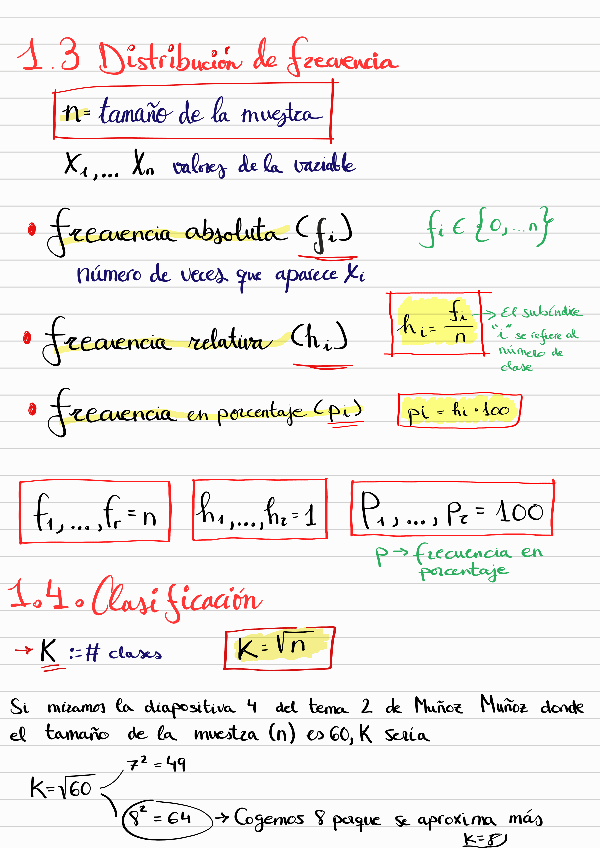 1.3 Distribución de frecuencia
n = tamaño de la muestra
X₁,... Xₙ valores de la variable
• frecuencia absoluta (fᵢ) fᵢ ∈ {0,...n}
número de veces que aparece Xᵢ
• frecuencia relativa (hᵢ) hᵢ = fᵢ/n → El subíndice
"i" se refiere al
número de
clase
• frecuencia en porcentaje (pi) pi = hi · 100
f₁,...,fᵣ = n h₁,...,hᵣ = 1 P₁,..., Pᵣ = 100
p → frecuencia en
porcentaje
1.4. Clasificación
→ K := # clases K = √n
Si miramos la diapositiva 4 del tema 2 de Muñoz Muñoz donde
el tamaño de la muestra (n) es 60, K sería
7² = 49
K = √60
8² = 64 → Cogemos 8 porque se aproxima más
K = 8